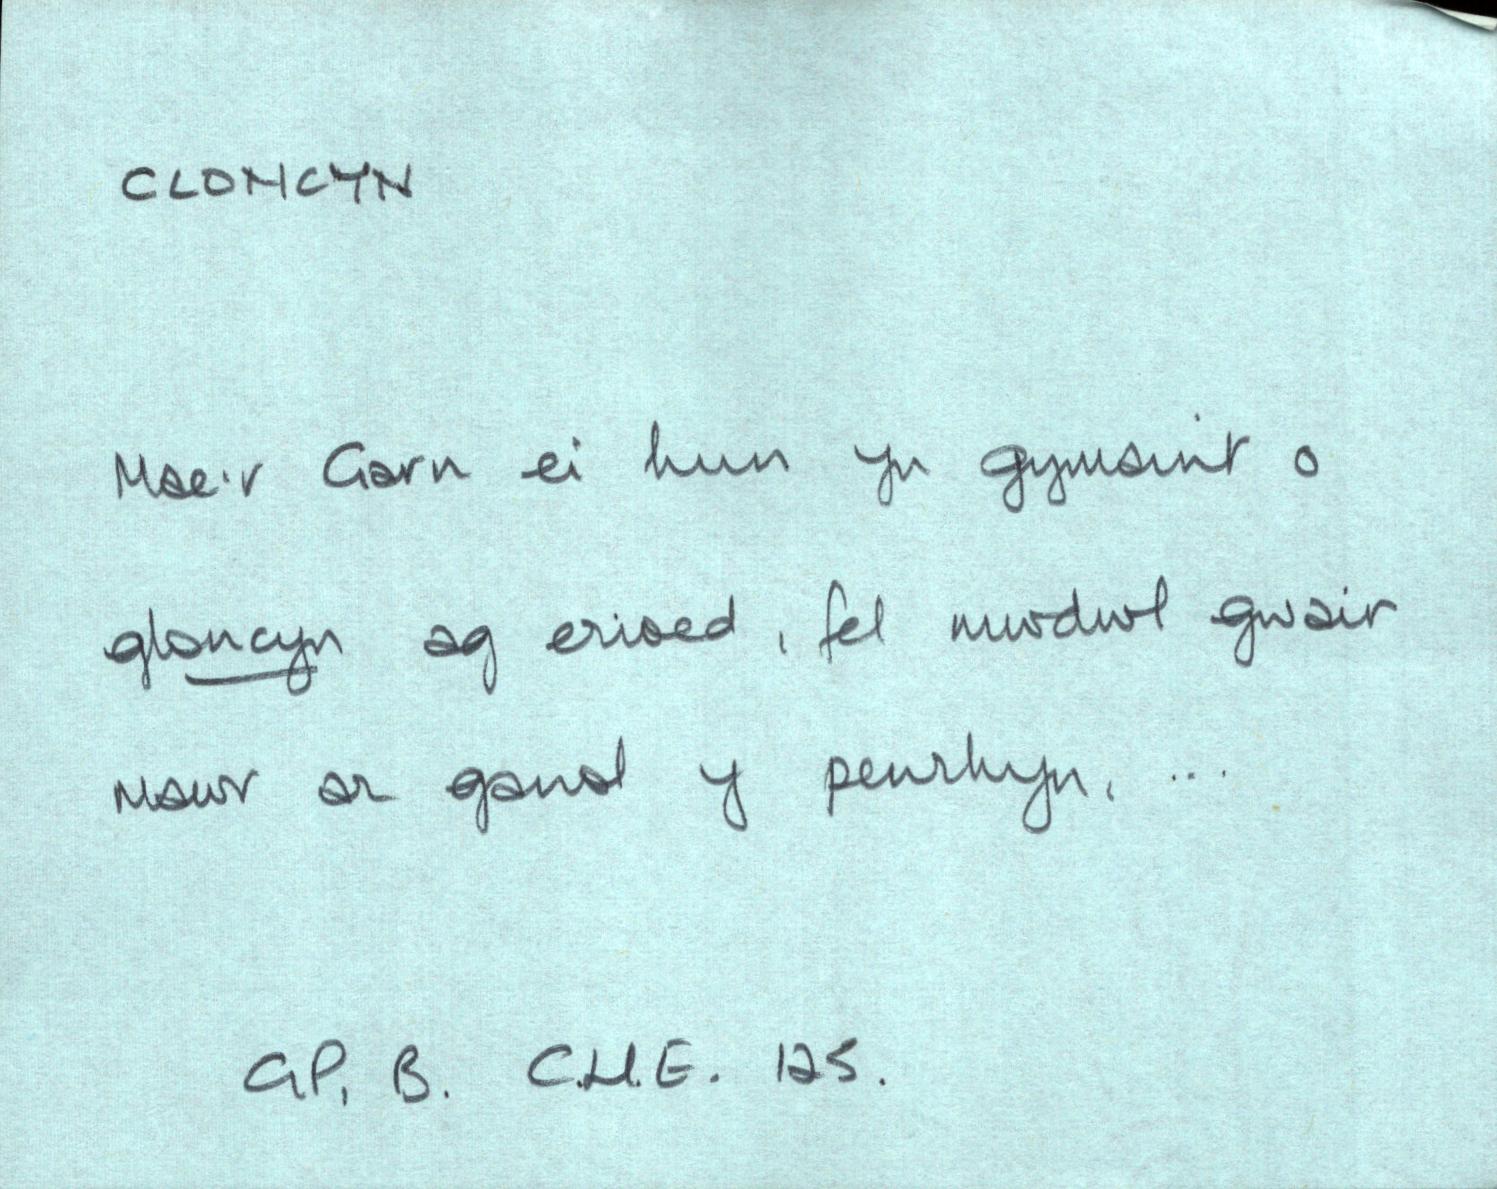 CLONCYN
Mae'r Garn ei hun yn gymaint o
gloncyn ag erioed, fel mwdwl gwair
mawr ar ganol y penrhyn, ...
GP, B. C.H.E. 125.